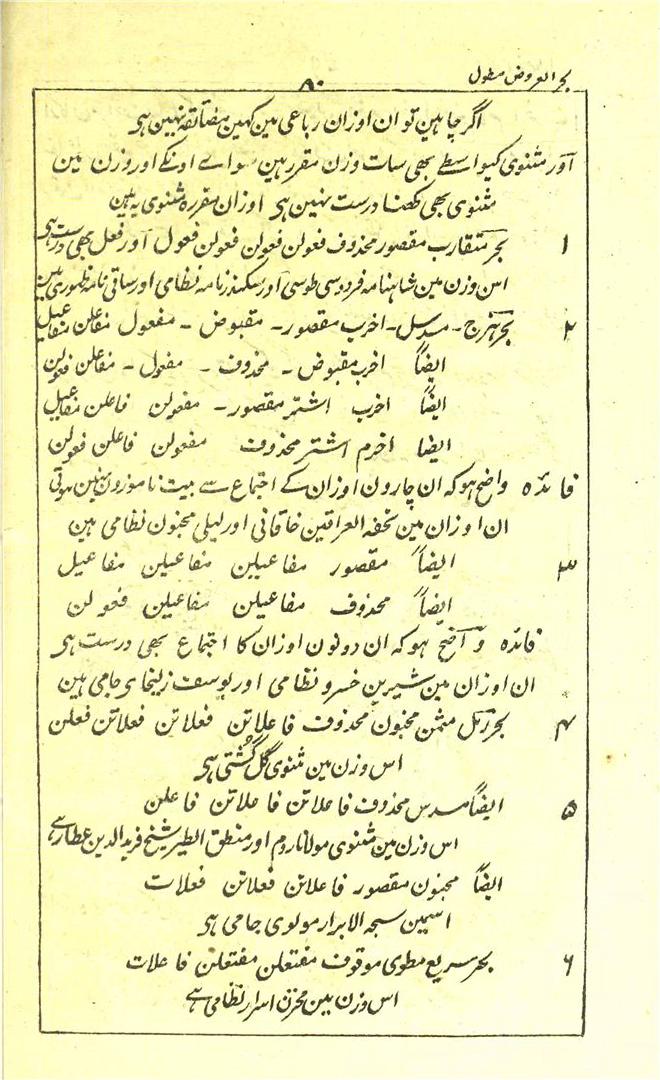 بحر العروض مطول
۸۰
اگر چاہین تو ان اوزان رباعی مین کہین مضائقہ نہین ہی
اور مثنوی کیواسطے بھی سات وزن مقرر ہین سواے اونکے اور وزن مین
مثنوی بھی لکھنا درست نہین ہی اوزان مقررہ مثنوی یہ ہین
۱ بحر متقارب مقصور محذوف فعولن فعولن فعولن فعول اور فعل بھی درست ہی
اس وزن مین شاہنامہ فردوسی طوسی اور سکندرنامہ نظامی اور ساقی نامہ ظہوری ہین
۲ بحر ہزج ۔ مسدس ۔ اخرب مقصور ۔ مقبوض ۔ مفعول مفاعلن مفاعیل
ایضاً اخرب مقبوض ۔ محذوف ۔ مفعول ۔ مفاعلن فعولن
ایضاً اخرب اشتر مقصور ۔ مفعولن فاعلن مفاعیل
ایضا اخرم اشتر محذوف مفعولن فاعلن فعولن
فائدہ واضح ہو کہ ان چارون اوزان کے اجتماع سے بیت ناموزون نہین ہوتی
ان اوزان مین تحفہ العراقین خاقانی اور لیلی مجنون نظامی ہین
۳ ایضاً مقصور مفاعیلن مفاعیلن مفاعیل
ایضاً محذوف مفاعیلن مفاعیلن فعولن
فائدہ واضح ہو کہ ان دونون اوزان کا اجتماع بھی درست ہی
ان اوزان مین شیرین خسرو نظامی اور یوسف زلیخاے جامی ہین
۴ بحر رمل مثمن مخبون محذوف فاعلاتن فعلاتن فعلاتن فعلن
اس وزن مین مثنوی گل کشتی ہی
۵ ایضاً مسدس محذوف فاعلاتن فاعلاتن فاعلن
اس وزن مین مثنوی مولانا روم اور منطق الطیر شیخ فرید الدین عطار ہے
ایضاً مخبون مقصور فاعلاتن فعلاتن فعلات
اسمین سبحہ الابرار مولوی جامی ہی
۶ بحر سریع مطوی موقوف مفتعلن مفتعلن فاعلات
اس وزن مین مخزن اسرار نظامی ہے